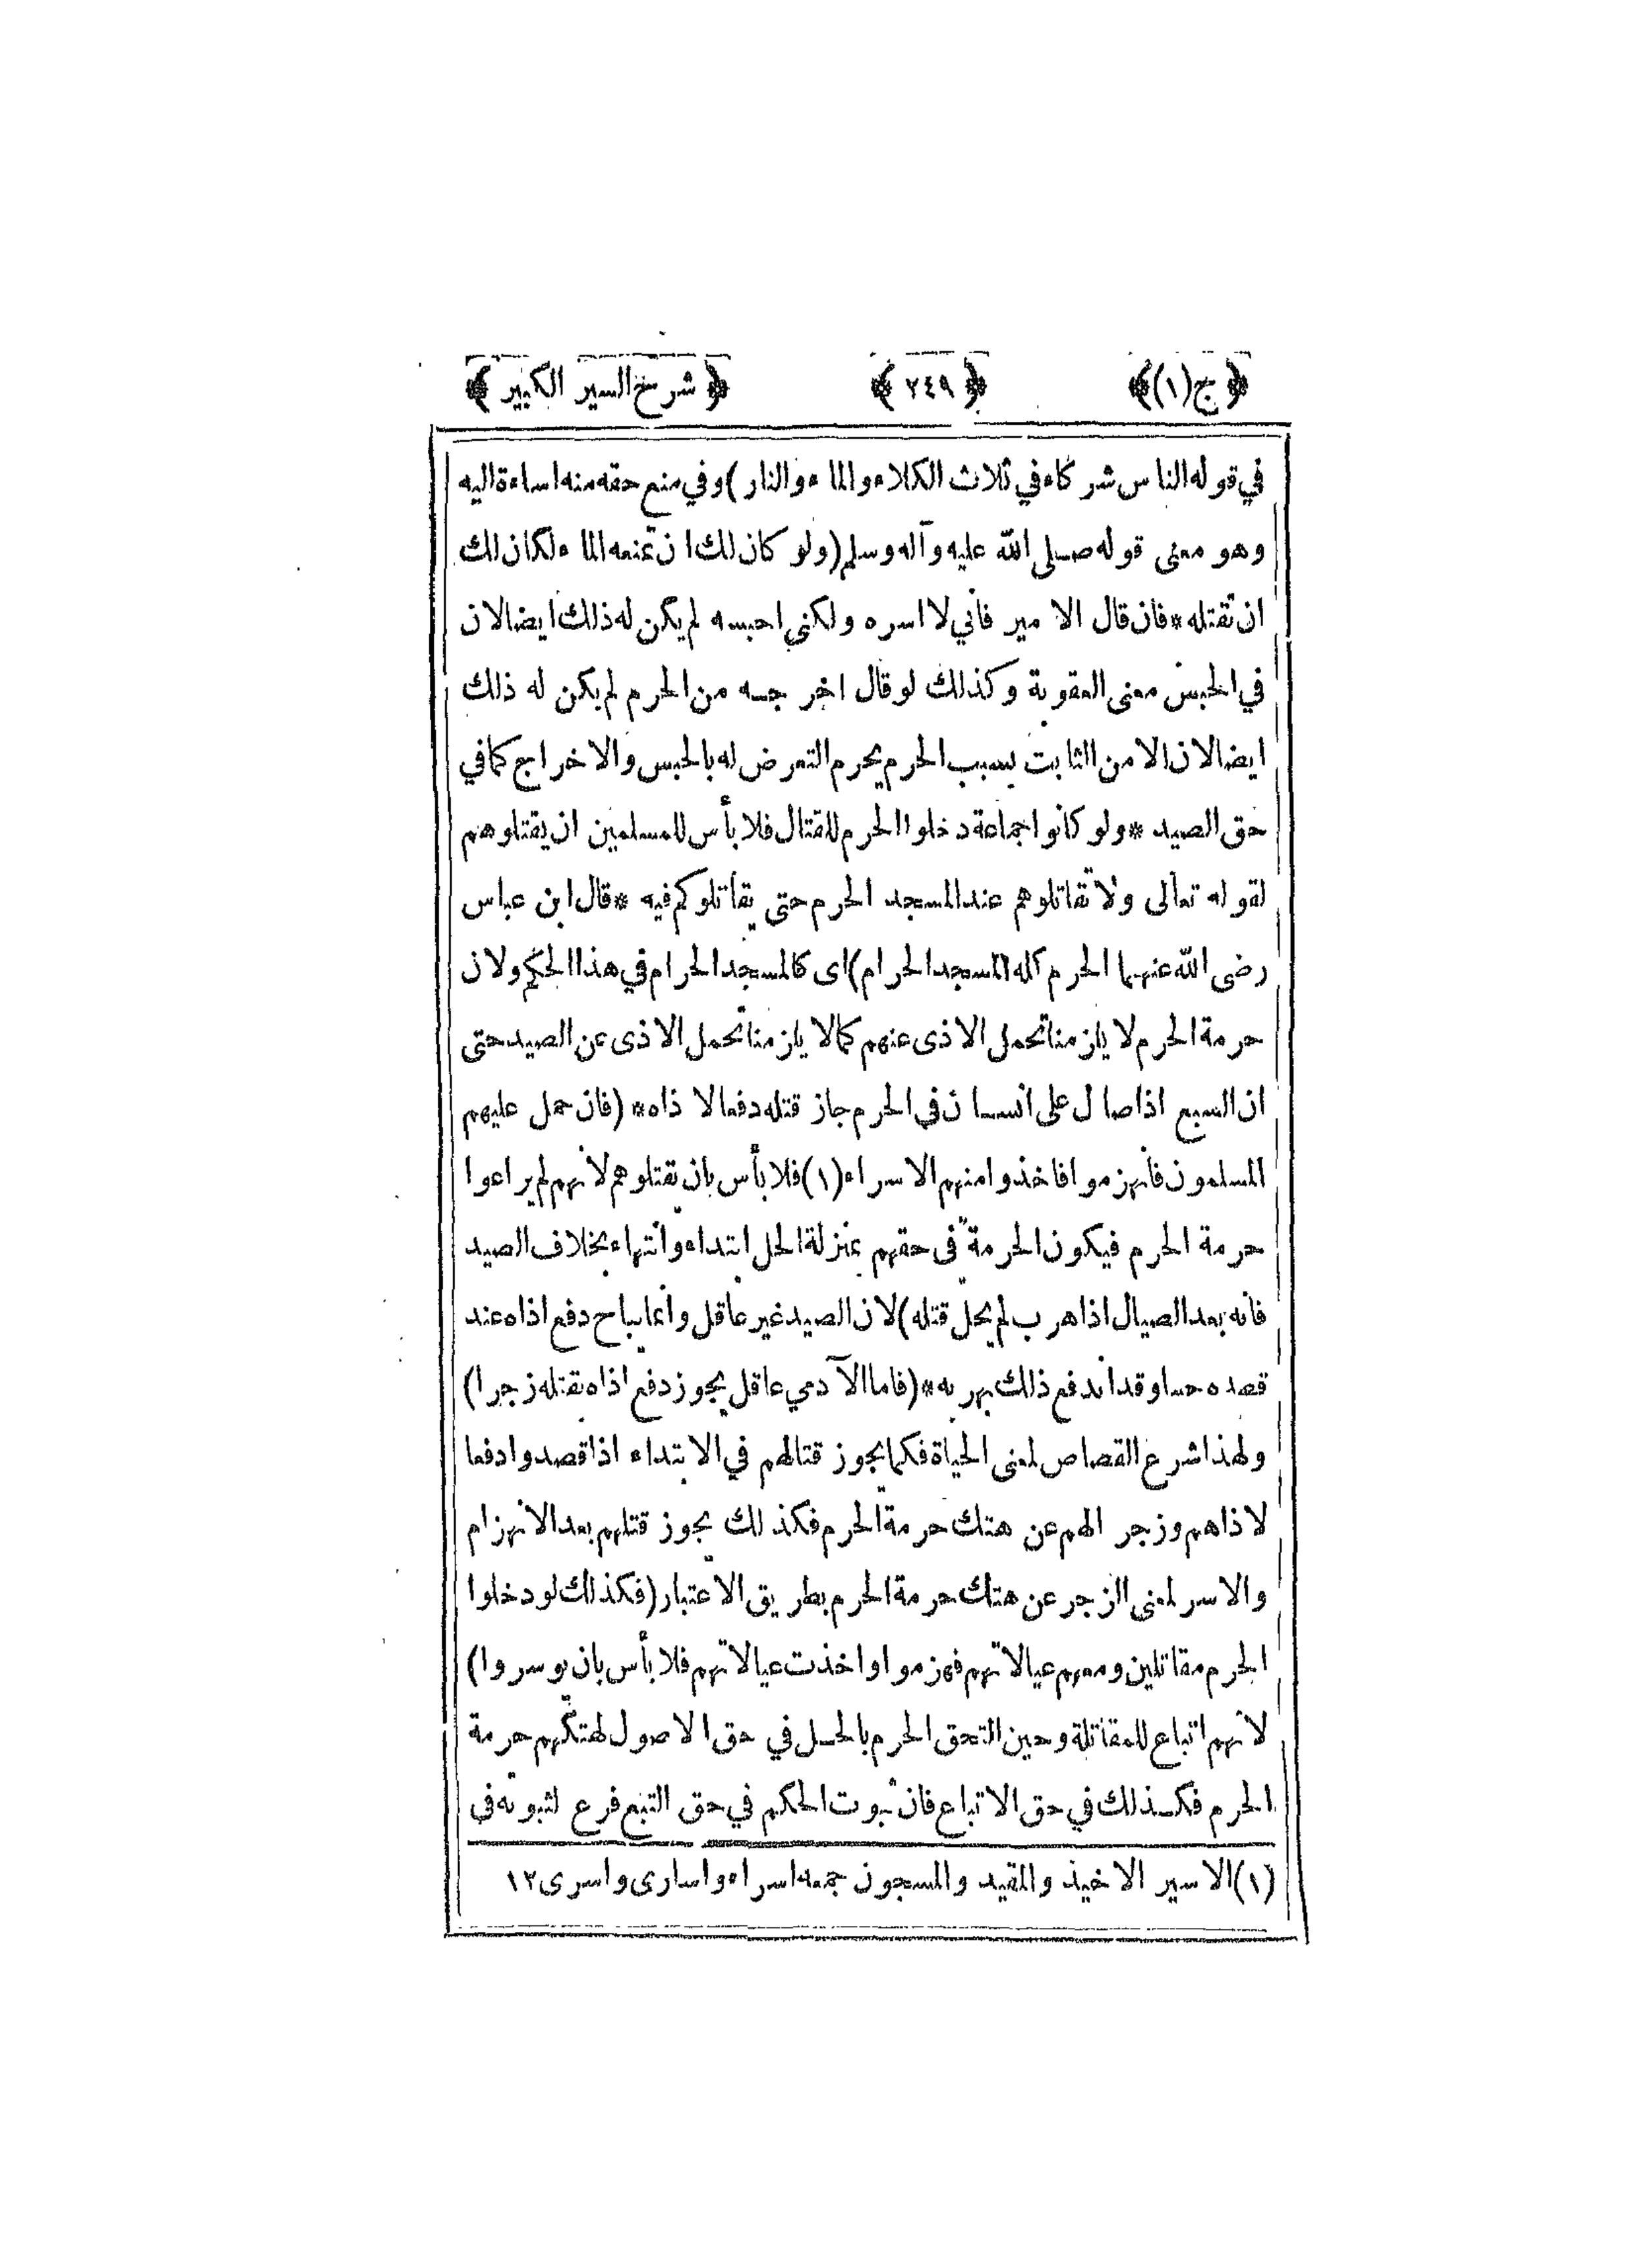 ﴿ ج(١) ﴾ ﴿ ٢٤٩ ﴾ ﴿ شرح السير الكبير ﴾
في قوله الناس شركاء في ثلاث الكلاء والماء والنار) وفي منع حقه منه اساءة اليه
وهو معنى قوله صلى الله عليه وآله وسلم (ولو كان لك ان تمنعه الماء لكان لك
ان تقتله * فان قال الامير فاني لا اسره ولكني احبسه لم يكن له ذلك ايضا لان
في الحبس معنى العقوبة وكذلك لو قال اخرجه من الحرم لم يكن له ذلك
ايضا لان الامن الثابت بسبب الحرم يحرم التعرض له بالحبس والاخراج كما في
حق الصيد * ولو كانوا جماعة دخلوا الحرم للقتال فلا بأس للمسلمين ان يقتلوهم
لقوله تعالى ولا تقاتلوهم عند المسجد الحرم حتى يقاتلوكم فيه * قال ابن عباس
رضى الله عنهما الحرم كله المسجد الحرام) اى كالمسجد الحرام في هذا الحكم ولان
حرمة الحرم لا يلزمنا تحمل الاذى عنهم كما لا يلزمنا تحمل الاذى عن الصيد حتى
ان السبع اذا صال على انسان في الحرم جاز قتله دفعا لاذاه * (فان حمل عليهم
المسلمون فانهزموا فاخذوا منهم الاسراء (١) فلا بأس بان يقتلوهم لانهم لم يراعوا
حرمة الحرم فيكون الحرمة في حقهم بمنزلة الحل ابتداء وانتهاء بخلاف الصيد
فانه بعد الصيال اذا هرب لم يحل قتله) لان الصيد غير عاقل وانما يباح دفع اذاه عند
قصده حسا وقد اندفع ذلك بهربه * (فاما الآدمي عاقل يجوز دفع اذاه بقتله زجرا)
ولهذا شرع القصاص لمعنى الحياة فكما يجوز قتالهم في الابتداء اذا قصدوا دفعا
لاذاهم وزجرا لهم عن هتك حرمة الحرم فكذلك يجوز قتلهم بعد الانهزام
والاسر لمعنى الزجر عن هتك حرمة الحرم بطريق الاعتبار (فكذلك لو دخلوا
الحرم مقاتلين ومعهم عيالاتهم فهزموا واخذت عيالاتهم فلا بأس بان يوسروا)
لانهم اتباع للمقاتلة وحين التحق الحرم بالحل في حق الاصول لهتكهم حرمة
الحرم فكذلك في حق الاتباع فان ثبوت الحكم في حق التبع فرع لثبوته في
(١) الاسير الاخيذ والمقيد والمسجون جمعه اسراء واسارى واسرى ١٢